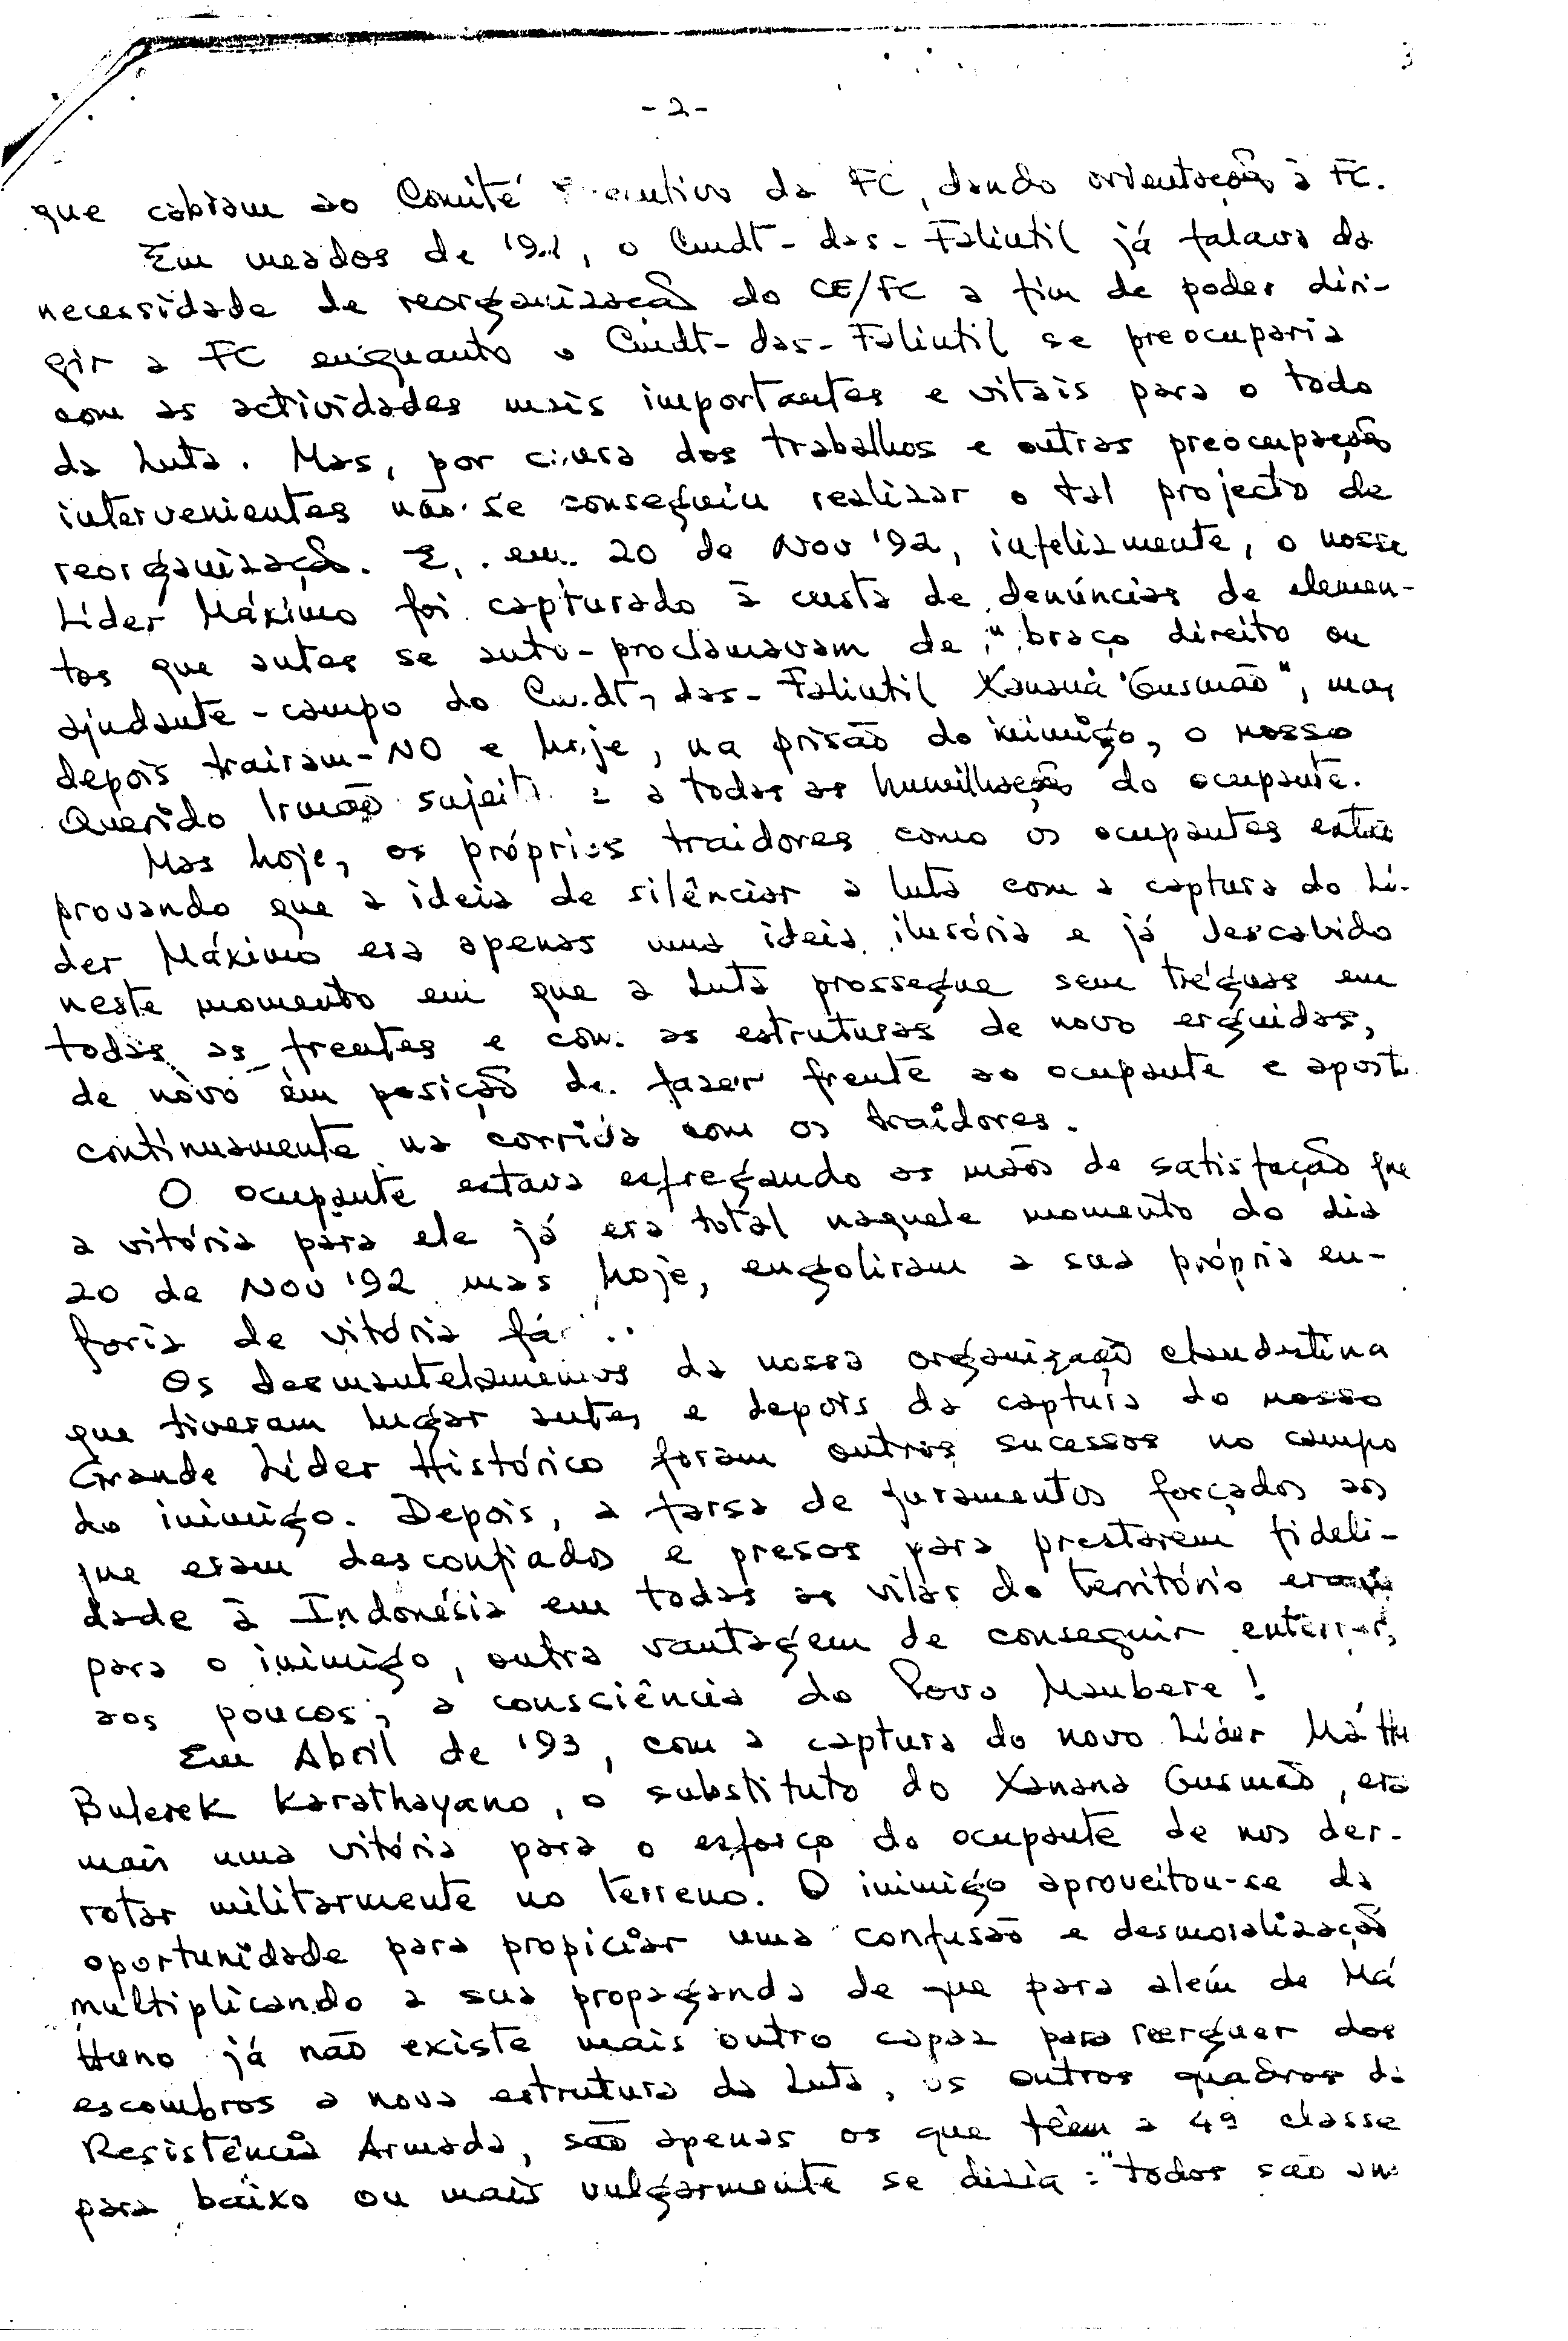 3
- 2 -
que cabiam ao Comité da FC, dando orientação à FC.
Em meados de o Cmdt-das-Falintil já falava da
necessidade de reorganização do CE/FC a fim de poder diri-
gir a FC enquanto o Cmdt-das-Falintil se preocuparia
com as actividades mais importantes e vitais para o todo
da Luta. Mas, por causa dos trabalhos e outras preocupações
intervenientes não se conseguiu realizar o tal projecto de
reorganização. E, em 20 de Nov '92, infelizmente, o nosso
Líder Máximo foi capturado à custa de denúncias de elemen-
tos que antes se auto-proclamavam de "braço direito ou
ajudante-campo do Cmdt-das-Falintil Xanana Gusmão", mas
depois trairam-NO e hoje, na prisão do inimigo, o nosso
Querido Irmão a todas as humilhações do ocupante.
Mas hoje, os próprios traidores como os ocupantes estão
provando que a ideia de silênciar a luta com a captura do Lí-
der Máximo era apenas uma ideia ilusória e já descabido
neste momento em que a Luta prossegue sem tréguas em
todas as frentes e com as estruturas de novo erguidas,
de novo em posição de fazer frente ao ocupante e
continuamente na corrida com os traidores.
O ocupante estava esfregando as mãos de satisfação que
a vitória para ele já era total naquele momento do dia
20 de Nov '92 mas hoje, engoliram a sua própria eu-
foria de vitória
Os desmantelamentos da nossa organização clandestina
que tiveram lugar antes e depois da captura do nosso
Grande Líder Histórico foram outros sucessos no campo
do inimigo. Depois, a farsa de juramentos forçados aos
que eram desconfiados e presos para prestarem fideli-
dade à Indonésia em todas as vilas do território
para o inimigo, outra vantagem de conseguir enterrar,
aos poucos, a consciência do Povo Maubere!
Em Abril de '93, com a captura do novo Líder Má Hu
Bulerek Karathayano, o substituto do Xanana Gusmão, era
mais uma vitória para o esforço do ocupante de nos der-
rotar militarmente no terreno. O inimigo aproveitou-se da
oportunidade para propiciar uma confusão e desmoralização
multiplicando a sua propaganda de que para além de Má
Huno já não existe mais outro capaz para reerguer dos
escombros a nova estrutura da Luta, os outros quadros da
Resistência Armada, são apenas os que têem a 4ª classe
para baixo ou mais vulgarmente se dizia: "todos são